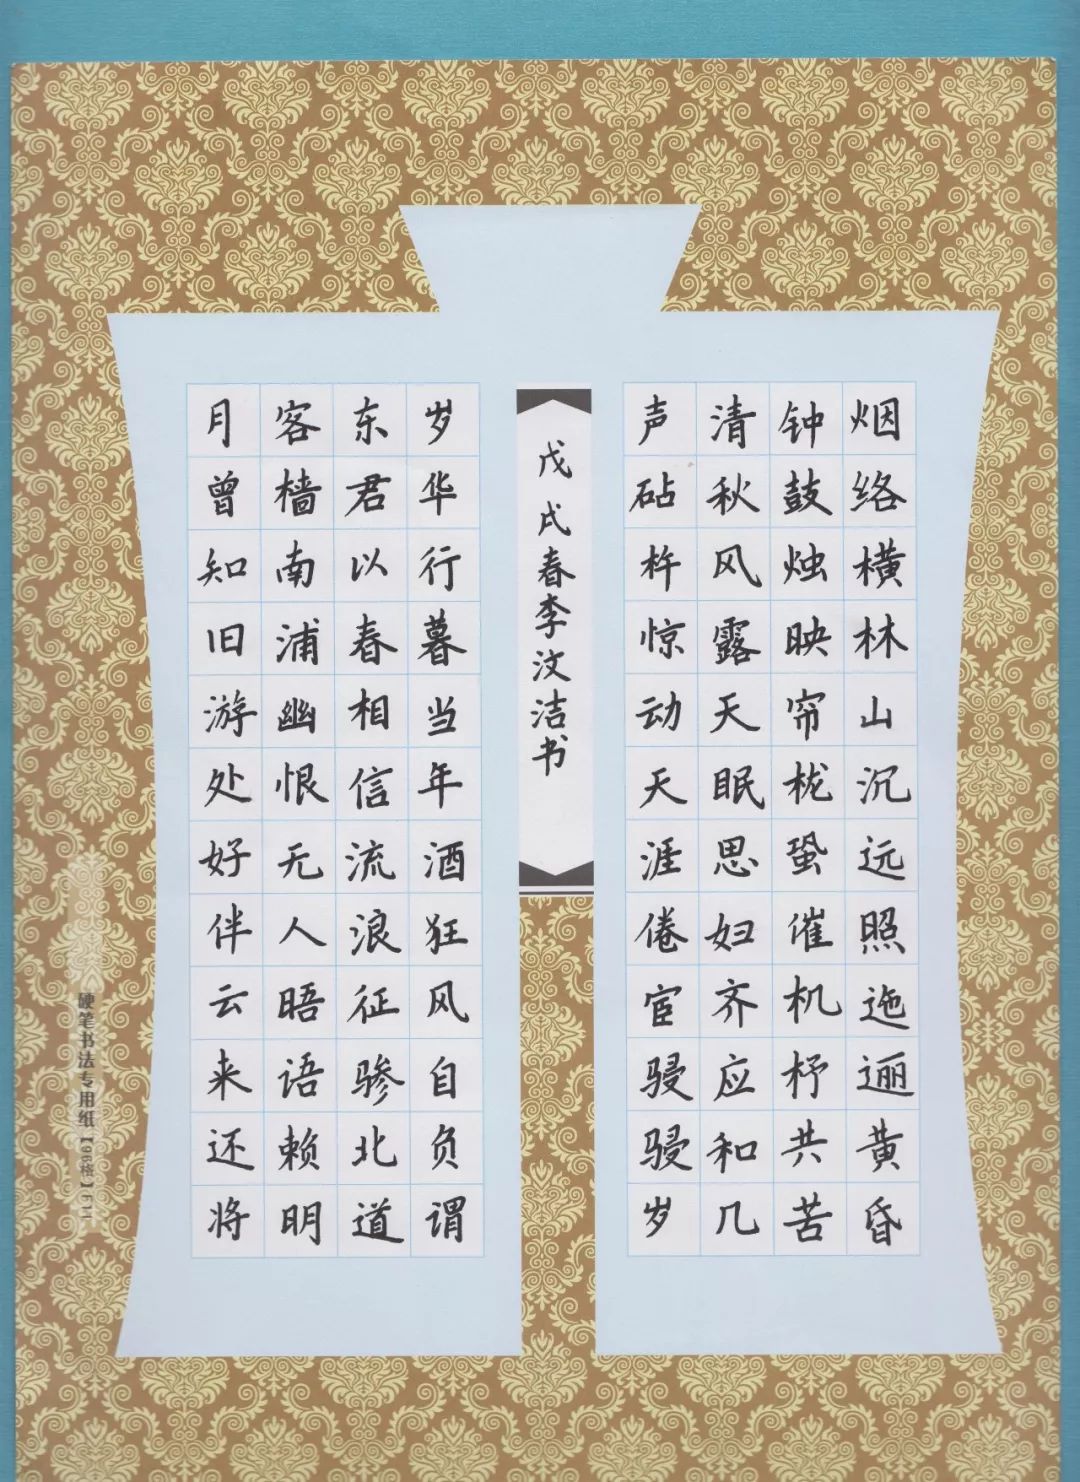 烟络横林山沉远照迤逦黄昏
钟鼓烛映帘栊蛩催机杼共苦
清秋风露天眠思妇齐应和几
声砧杵惊动天涯倦宦骎骎岁
岁华行暮当年酒狂风自负谓
东君以春相信流浪征骖北道
客樯南浦幽恨无人晤语赖明
月曾知旧游处好伴云来还将
戊戌春李汶洁书
硬笔书法专用纸【96格】